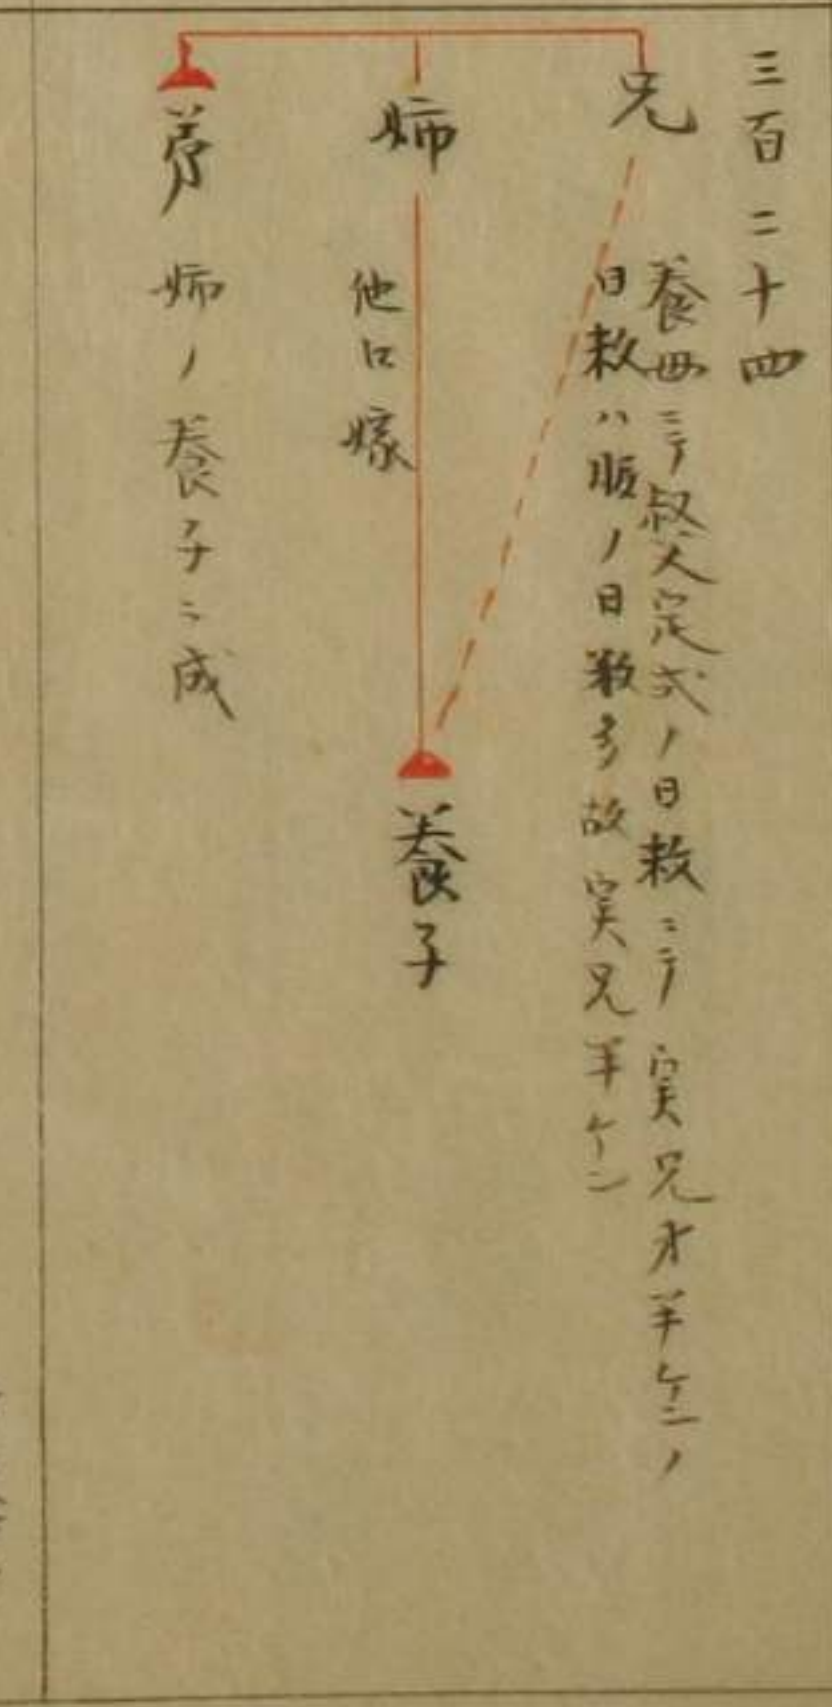 三百二十四
兄
養母ニテ叔父定式ノ日数ニテ実兄才半ケンノ
日数ハ服ノ日数多故実兄半ケン
姉
他口嫁
養子
弟
姉ノ養子ニ成